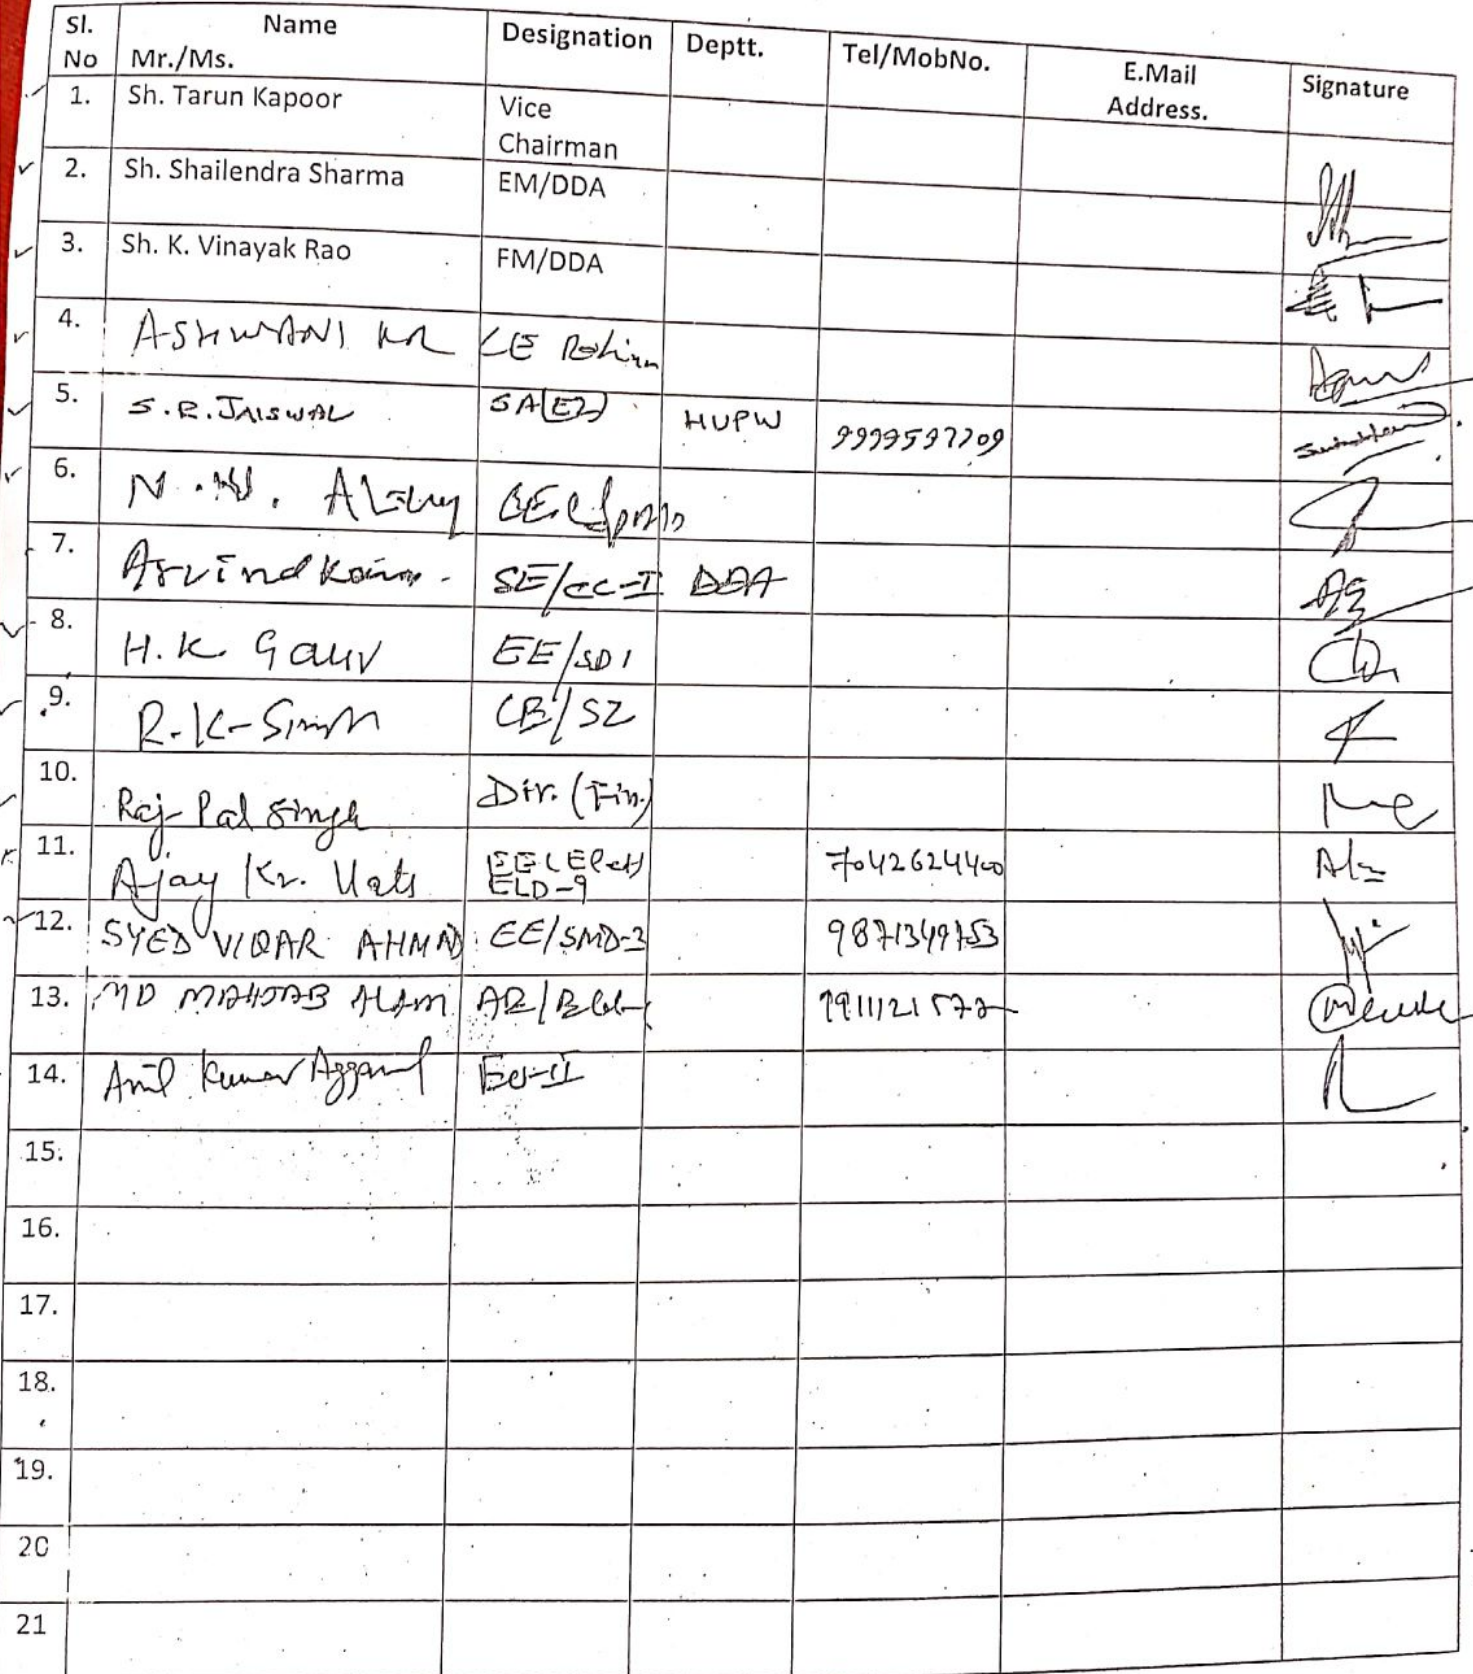 Sl. No Name Mr./Ms. Designation Deptt. Tel/MobNo. E.Mail Address. Signature
1. Sh. Tarun Kapoor Vice Chairman
2. Sh. Shailendra Sharma EM/DDA
3. Sh. K. Vinayak Rao FM/DDA
4. ASHWANI KR CE Rohini
5. S.R. JAISWAL SA(EZ) HUPW 9999597709
6. N.
7. Arvind Kumar. SE/CC-I DDA
8. H.K. Gaur EE/SD1
9. R.K. Singh CE/SZ
10. Raj Pal Singh Dir. (Fin.)
11. Ajay Kr. Vats ELD-9 7042624400
12. SYED VIQAR AHMAD EE/SMD-3 9871349753
13. MD MAHTAB ALAM
14. Anil Kumar Aggarwal
15.
16.
17.
18.
19.
20
21